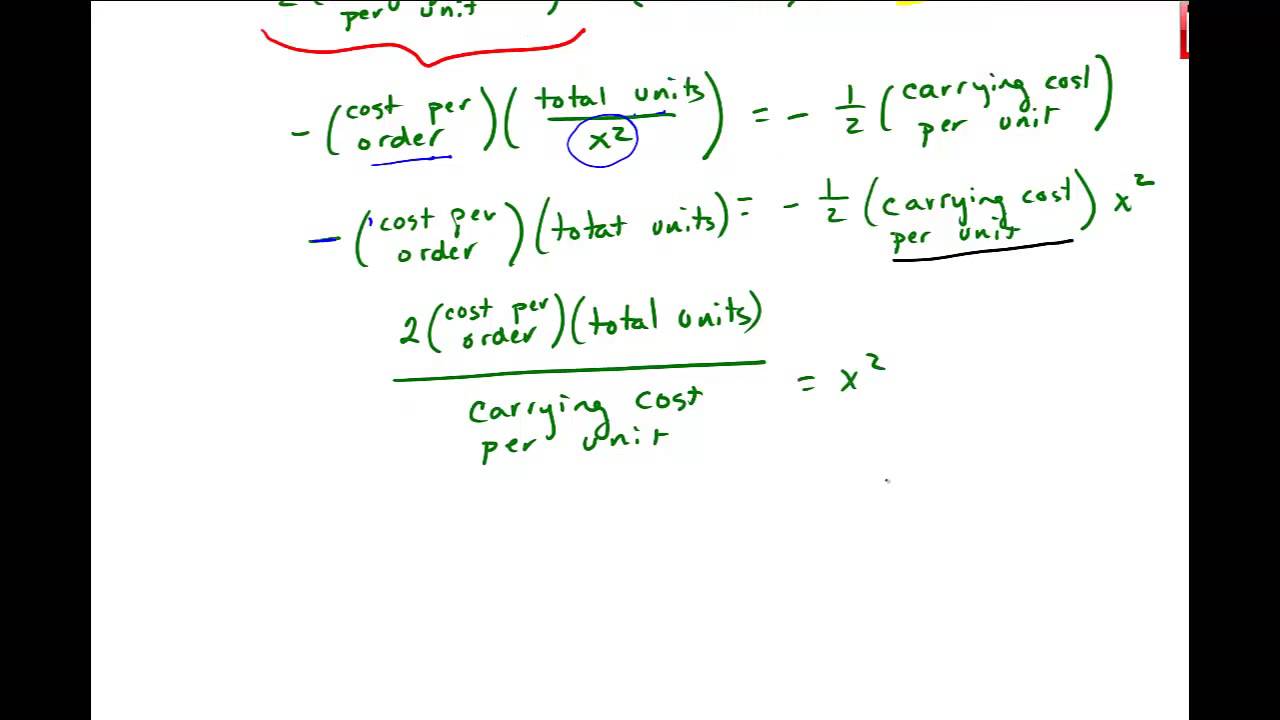 per unit
- (cost per order) (total units / x²) = - 1/2 (carrying cost per unit)
- (cost per order) (total units) = - 1/2 (carrying cost per unit) x²
2 (cost per order) (total units) / carrying cost per unit = x²